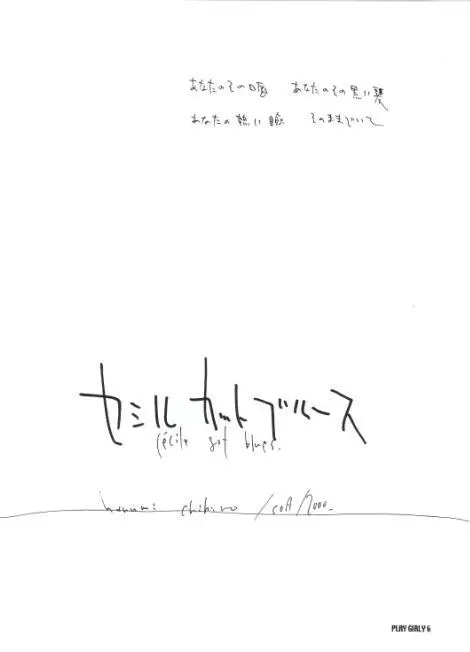 あなたのその唇 あなたのその黒い
あなたの熱い瞼 そのままでいて
セシル カット ブルース
cécile got blues.
chihiro / 2000.
PLAY GIRLY 6